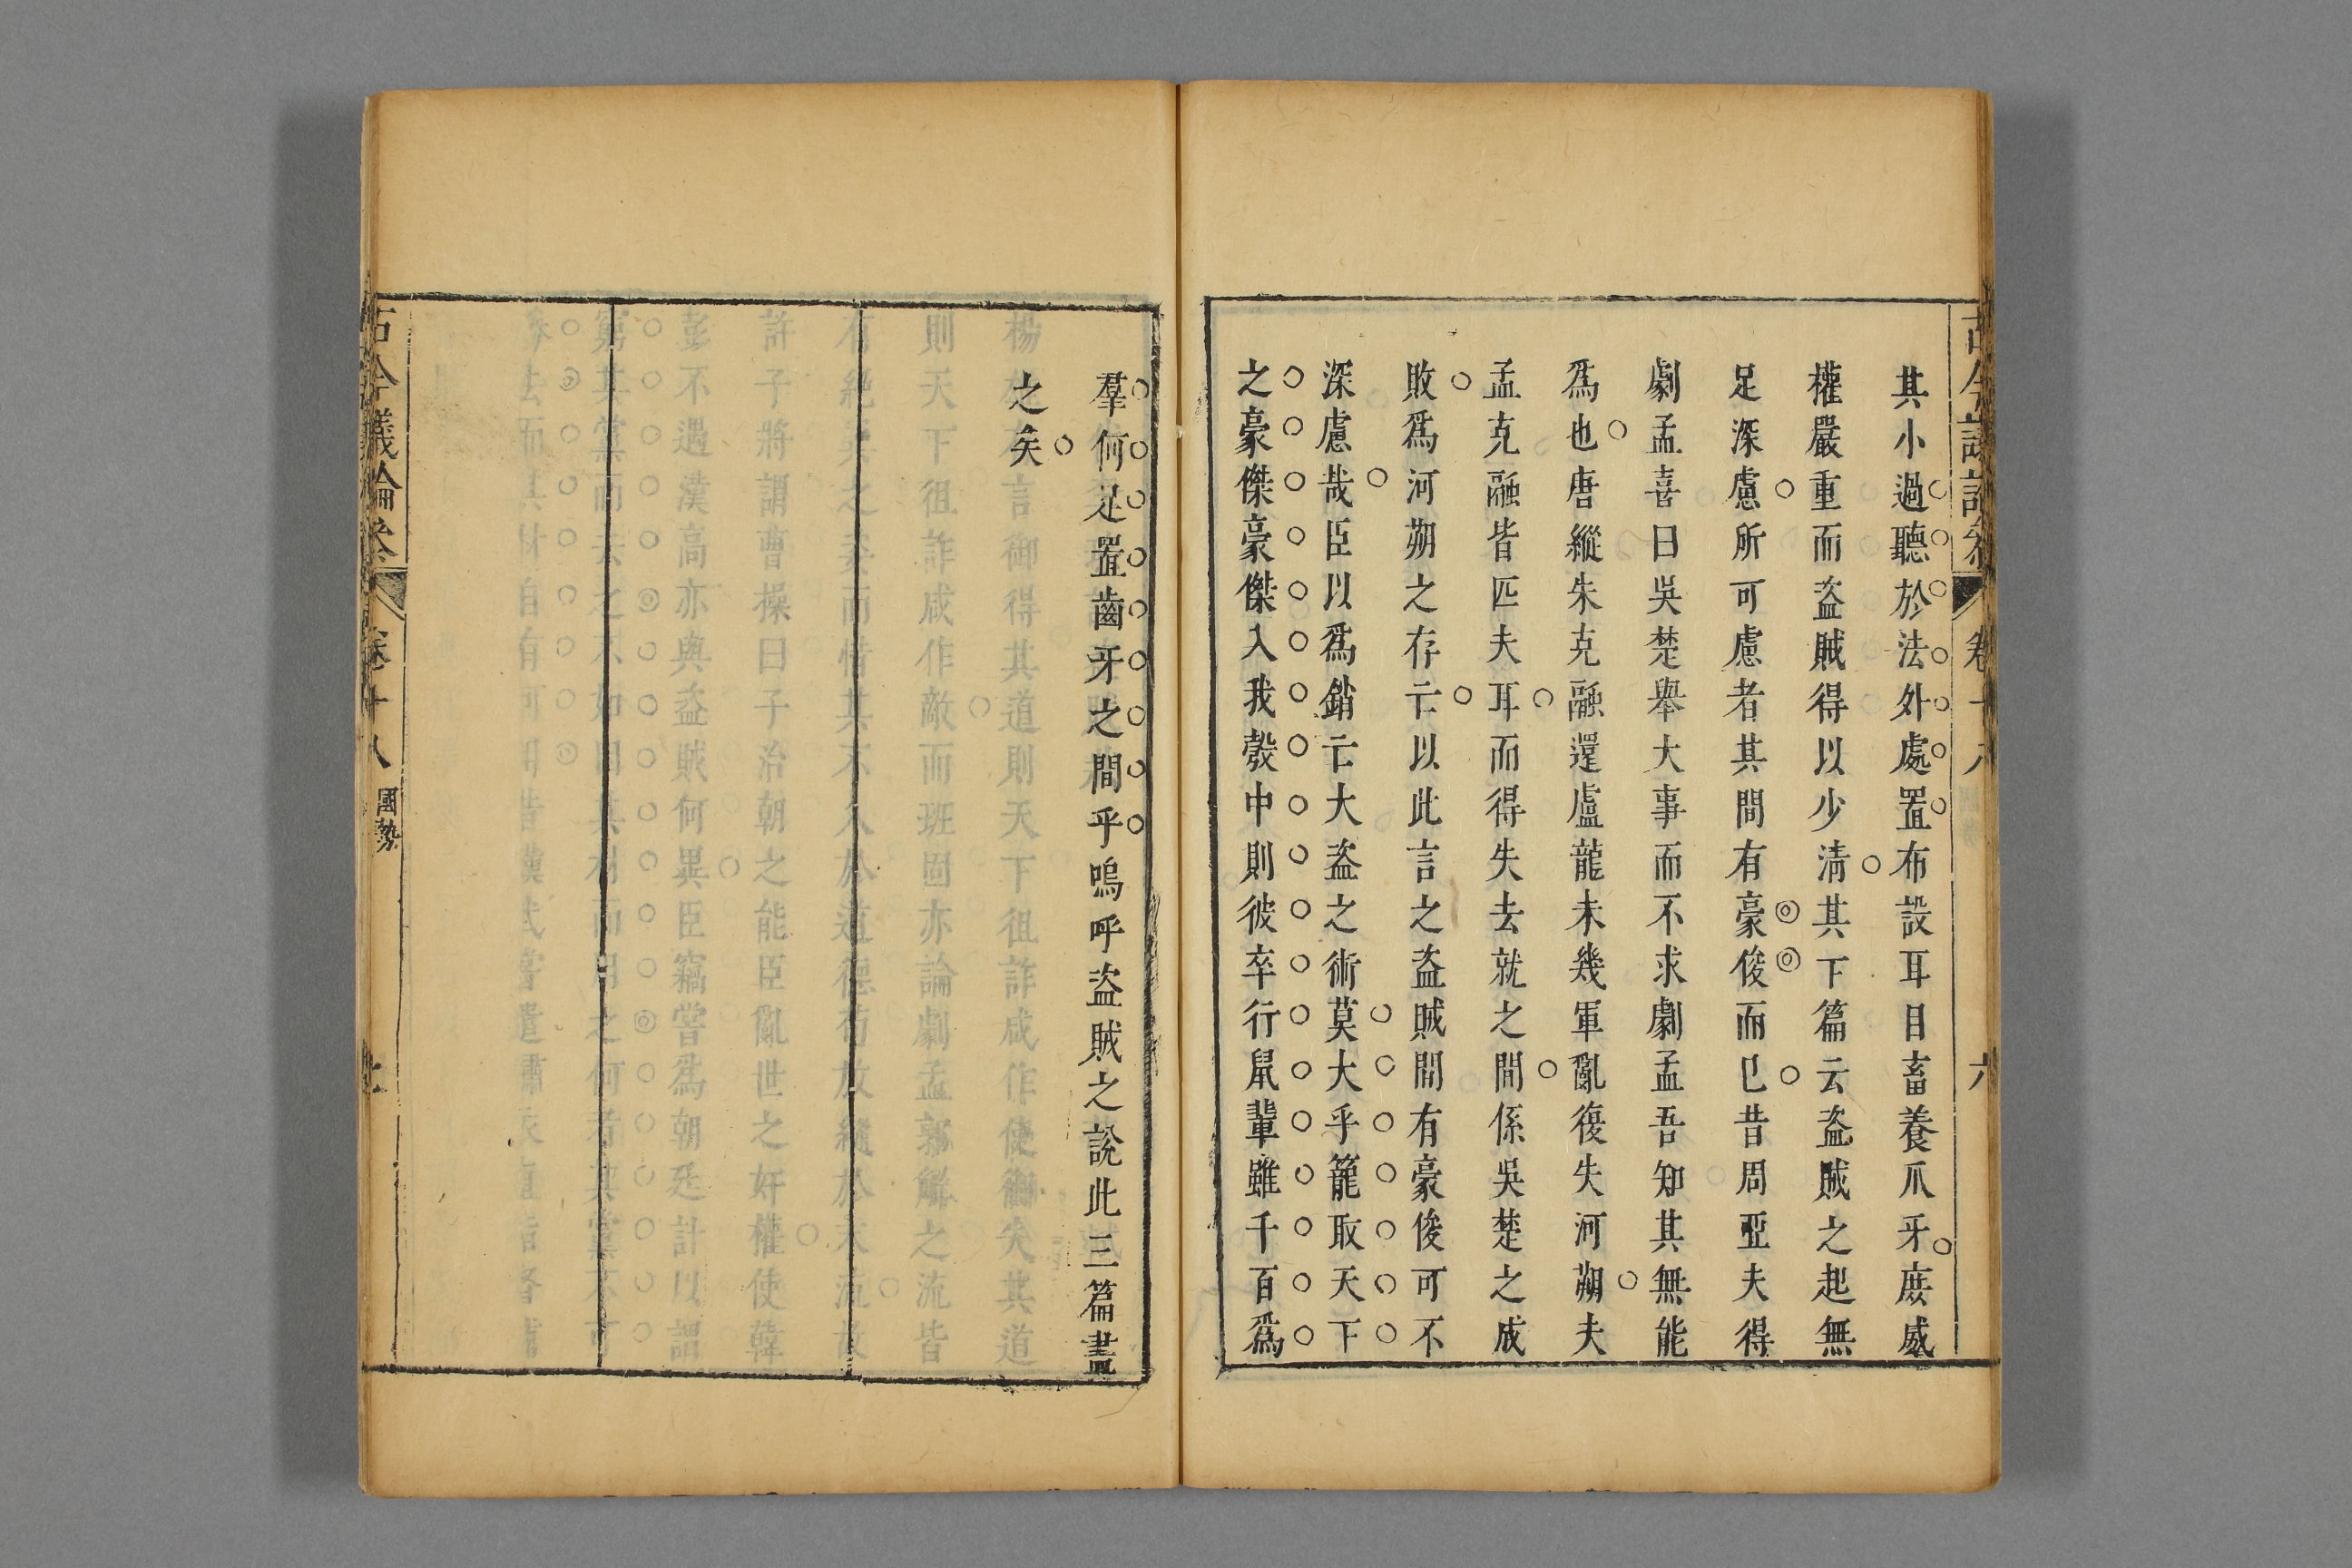 其小過聽於法外處置布設耳目畜養爪牙庶威
權嚴重而盜賊得以少淸其下篇云盜賊之起無
足深慮所可慮者其間有豪俊而已昔周亞夫得
劇孟喜曰吳楚舉大事而不求劇孟吾知其無能
爲也唐縱朱克融還盧龍未幾軍亂復失河朔夫
孟克融皆匹夫耳而得失去就之間係吳楚之成
敗爲河朔之存亡以此言之盜賊間有豪俊可不
深慮哉臣以爲銷亡大盜之術莫大乎籠取天下
之豪傑豪傑入我彀中則彼卒行鼠輩雖千百爲
羣何足置齒牙之間乎嗚呼盜賊之說此三篇盡
之矣
古今議論參
卷十八
國勢